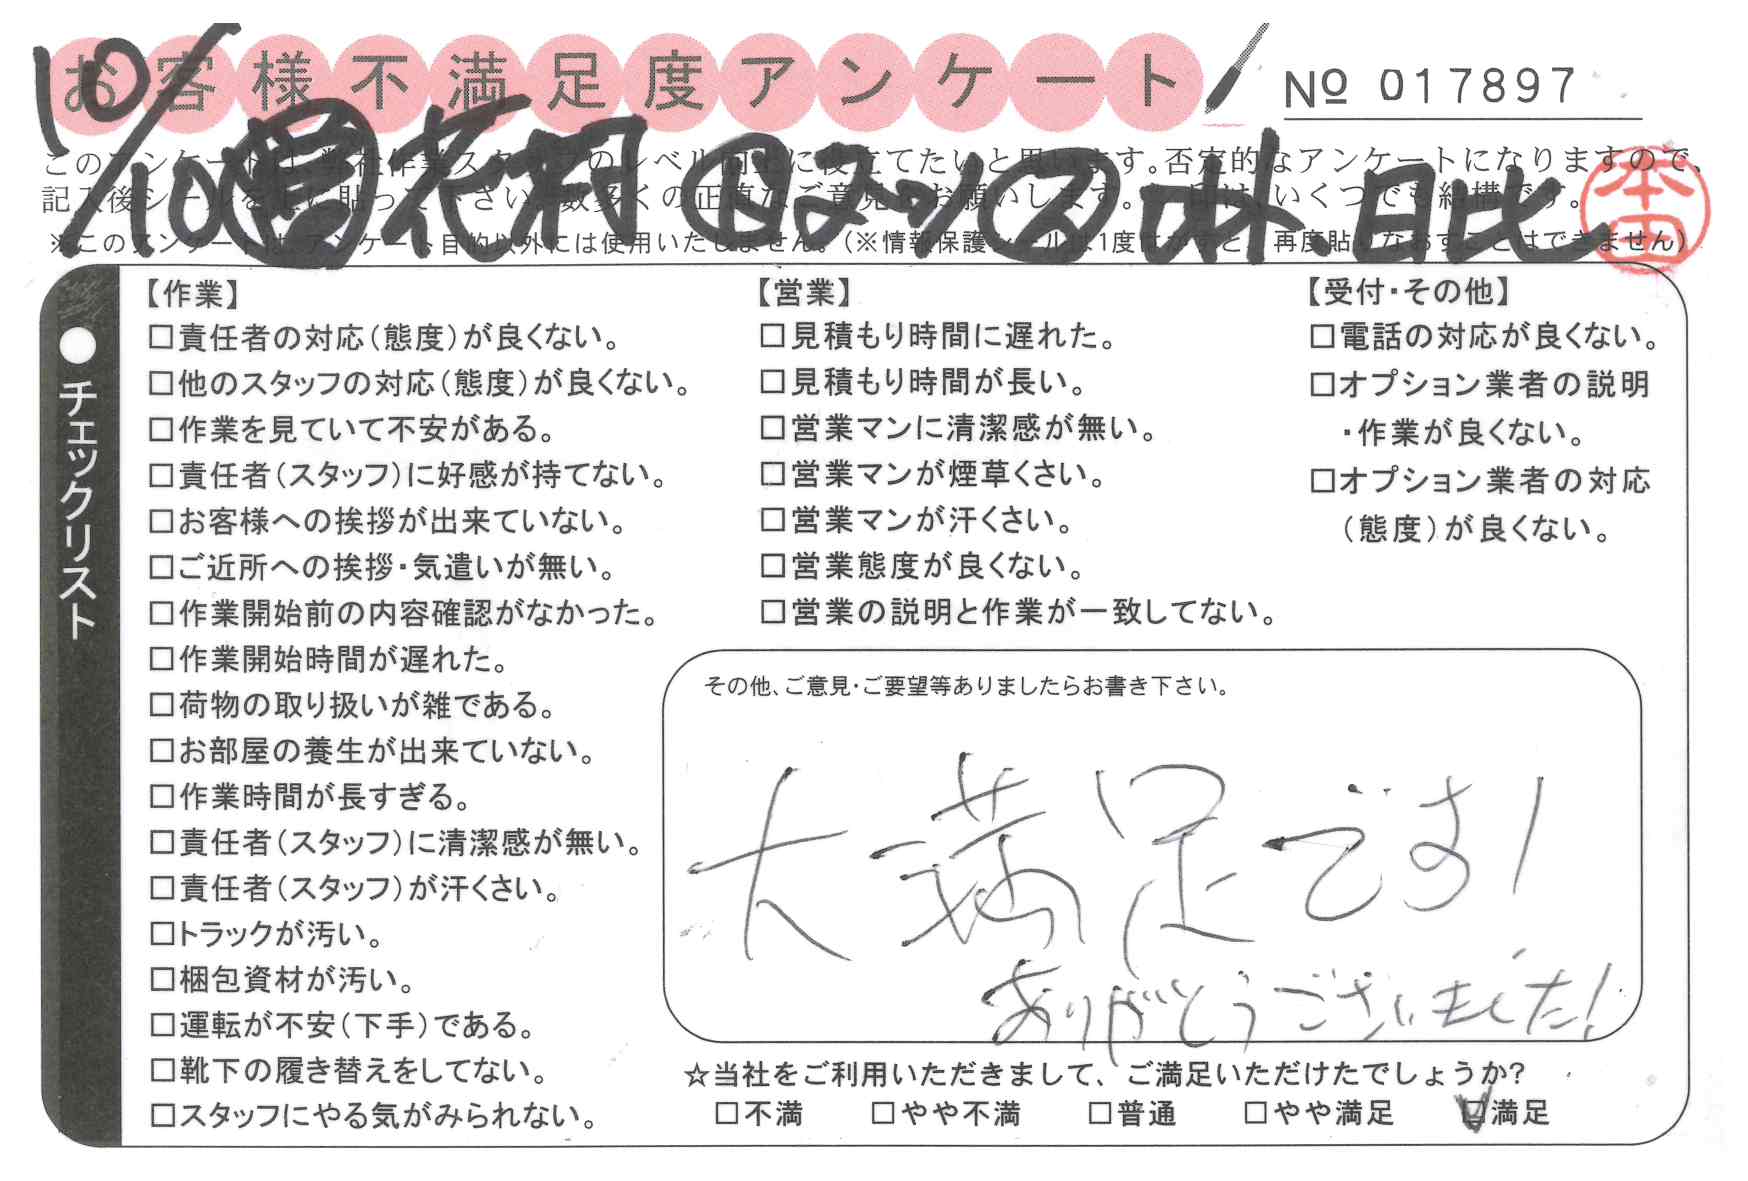 お客様不満足度アンケート
№ 017897
10/10 花村 林 日比
本田
このアンケートは、弊社作業スタッフのレベル向上に役立てたいと思います。否定的なアンケートになりますので、
記入後シールを上に貼って下さい。数多くの正直なご意見をお願いします。 いくつでも結構です。
※このアンケートは、アンケート目的以外には使用いたしません。(※情報保護シールは1度はがすと、再度貼りなおすことはできません)
●チェックリスト
【作業】
□責任者の対応(態度)が良くない。
□他のスタッフの対応(態度)が良くない。
□作業を見ていて不安がある。
□責任者(スタッフ)に好感が持てない。
□お客様への挨拶が出来ていない。
□ご近所への挨拶・気遣いが無い。
□作業開始前の内容確認がなかった。
□作業開始時間が遅れた。
□荷物の取り扱いが雑である。
□お部屋の養生が出来ていない。
□作業時間が長すぎる。
□責任者(スタッフ)に清潔感が無い。
□責任者(スタッフ)が汗くさい。
□トラックが汚い。
□梱包資材が汚い。
□運転が不安(下手)である。
□靴下の履き替えをしてない。
□スタッフにやる気がみられない。
【営業】
□見積もり時間に遅れた。
□見積もり時間が長い。
□営業マンに清潔感が無い。
□営業マンが煙草くさい。
□営業マンが汗くさい。
□営業態度が良くない。
□営業の説明と作業が一致してない。
【受付・その他】
□電話の対応が良くない。
□オプション業者の説明
・作業が良くない。
□オプション業者の対応
(態度)が良くない。
その他、ご意見・ご要望等ありましたらお書き下さい。
大満足です!
ありがとうございました!
☆当社をご利用いただきまして、ご満足いただけたでしょうか?
□不満 □やや不満 □普通 □やや満足 ☑満足